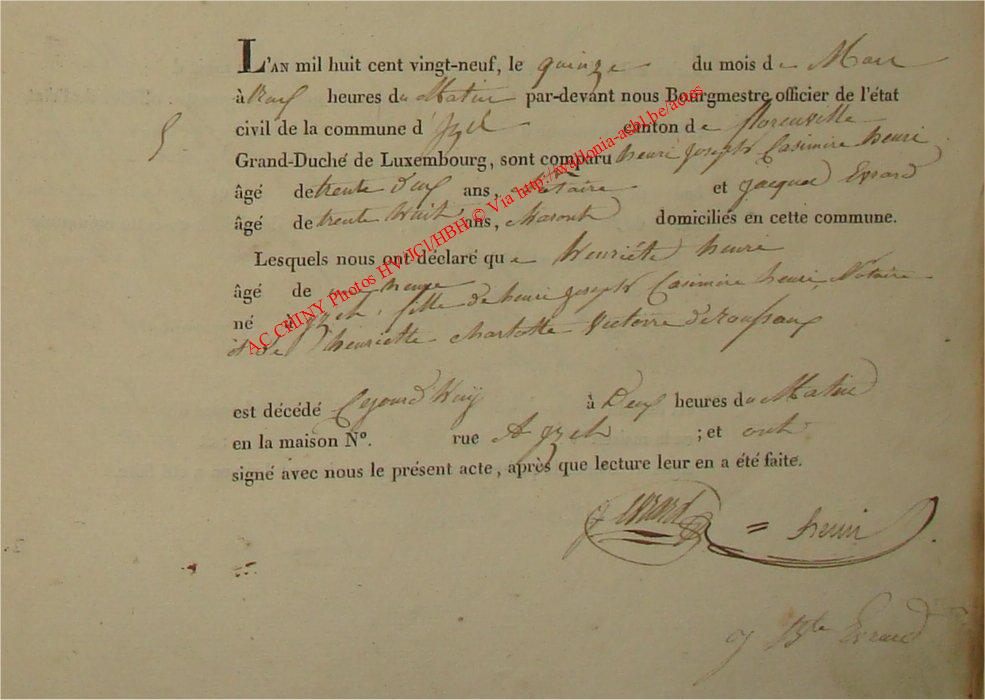 L'AN mil huit cent vingt-neuf, le quinze du mois de Mars
à heures du Matin par-devant nous Bourgmestre officier de l'état
5
civil de la commune d'Izel canton de florenville
Grand-Duché de Luxembourg, sont comparu henri Joseph Casimire henri
âgé de trente deux ans, Notaire et Jacques Evrard
âgé de trente huit ans, domiciliés en cette commune.
Lesquels nous ont déclaré que henriéte henri
âgé de heure
né à Izel, fille de henri Joseph Casimire henri, Notaire
et de henriette Charlotte Victoire
est décédé Cejourd'huy à Deux heures du Matin
en la maison N°. rue A Izel ; et ont
signé avec nous le présent acte, après que lecture leur en a été faite.
J Evrard = henri
J Bte Evrard
AC CHINY Photos HVJGl/HBH © Via http://wallonia-asbl.be/actes